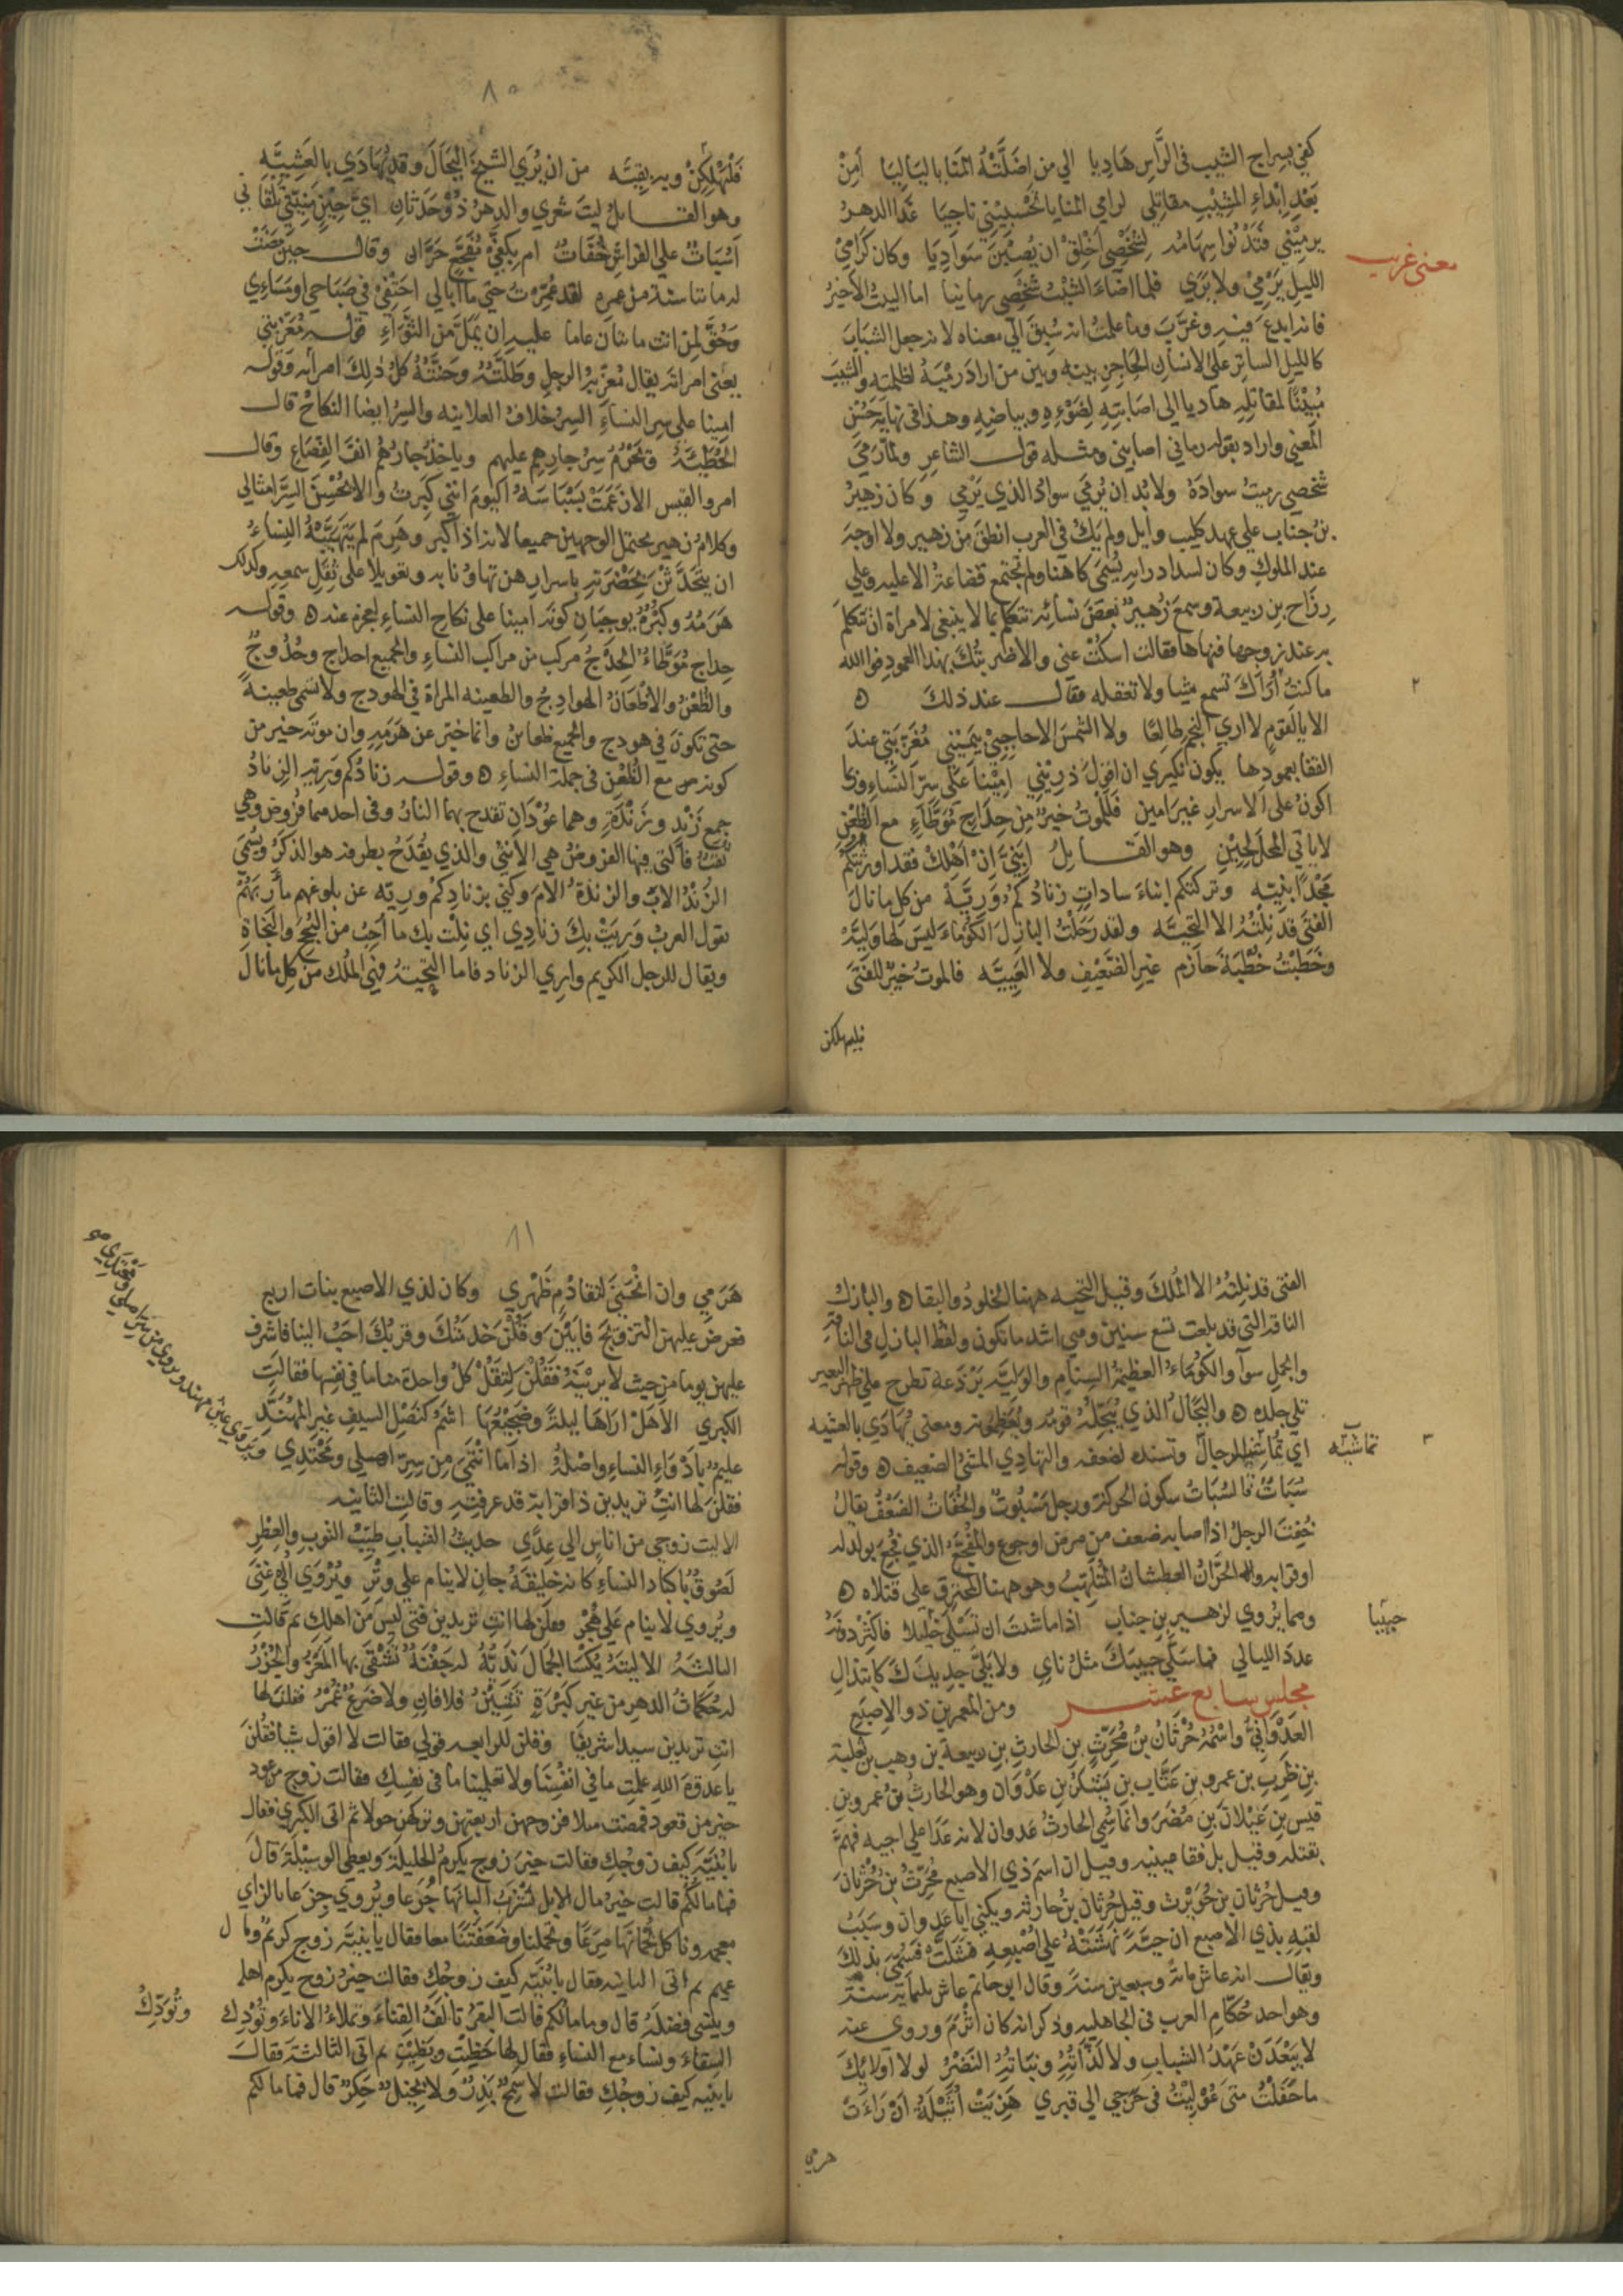 كفي بسراج الشيب في الرَّاسِ هَادِيا الي من اضَلَّتْهُ المنَايا لَيَا لِيَا اَمِنْ
بَعْدِ اِبْدَاءِ المشِيْبِ مقاتِلي لرامي المنايا تَحْسَبِيْنِي نَاجِيَا غَدا الدهرُ
يرميْنِي فتَدْنُوا سِهَامُه لِشَخْصِي اَخْلِقْ ان يُصِبْنَ سَوادِيَا وكان كَرَامِيْ
الليل يَرْمِيْ ولا يَرَي فلما اضَاءَ الشَيْبُ شَخْصِي رمانيا اما البيتُ الأَخيرُ
فانه ابدعَ فيه وغرَّبَ وما علمتُ انه سُبِقَ الي معناه لانه جعل الشبَابَ
كالليل الساتر علي الانسان الحَاجِز بينه وبين من ارادَ رميَهُ لظلمته والشَيبَ
مُبْدِيًا لمقاتِله هاديا الي اصابتِه لضَوْءِه وبياضِه وهذا في نهاية حُسْنِ
المَعْنِي واراد بقوله رماني اصابني ومثله قول الشاعر ولمّا رَمَي
شخصي رميتُ سوادَهُ ولا بُد ان يُرمَي سوادُ الذي يَرْمِي وكان زهيرُ
بن جناب علي عهد كليب وايل ولم يَكُ في العرب انطقَ مِن زهير ولا اوجهَ
عند الملوكِ وكان لسداد رايه يُسمَي كاهنا ولم تجتمع قضاعةُ الا عليه وعلي
رِزَاح بن ربيعة وسمعَ زُهيرٌ بعضَ نسائِه تتكلم بما لا ينبغي لامراة ان تتكلمَ
به عند زوجها فنهاها فقالت اسكُتْ عني والا ضربتُكَ بهذا العمود فوالله
ما كنتُ اُرَاكَ تسمع شيا ولا تعقله فقال عند ذلك
الا يالقَومٍ لا اري النجمَ طالِعًا ولا الشمسَ الا حاجِبِيْ بِيَمِيْنِي مُعَزِّبَتِي عندَ
القفا بعمودها يكون نكيري ان اقولَ ذرِيْنِي امِيْنا علَي سِرّ النساءِ وربما
اكونُ علي الاسرارِ غيرَ امين فَلَلموتُ خيرٌ مِن حِدَاجٍ مُوَطَّاءٍ مع الظُعْنِ
لا ياتي المحلَّ لِحِيْنِ وهو القايلُ اَبَنِيَّ اِنْ اَهْلِكْ فقد اورَثْتُكُمْ
مَجْدًا بَنِيَّه وتركتكم ابناءَ ساداتٍ زنادُكُمُ وَرِيَّه من كل ما نال
الفتَي قد نِلْتُهُ الا التحِيَّه ولقد رَحَلْتُ البازِلَ الكَوْمَاءَ ليسَ لهَا وَلِيَّه
وخَطَبْتُ خُطْبَةَ حَازِمٍ غيرِ الضَّعِيْفِ ولا العَيِيَّه فالموتُ خيرٌ للفَتَي
فليهلكن
معني غريب
٢
٨٠
فَلْيَهْلِكَنْ وبه بقيَّه من ان يُرَي الشيخَ البَجَالَ وقد يُهَادَي بالعَشِيَّهِ
وهو القايلُ ليتَ شعري والدهرُ ذُوْحَدَثانِ ايَّ حِيْنٍ مَنِيَّتِي تلقاني
اَسُبَاتٌ علي الفراشِ خُفَاتٌ ام بِكَفَّيْ مُفَجَّعٍ حَرَّانِ وقال حين مَضَتْ
له مائتا سنة من عمره لقد عُمِّرْتُ حتي ما اُبَالي اَحَتْفِيْ في صَبَاحي او مَسَاءِي
وحُقَّ لِمَنْ اتت مائتان عاما عليه ان يَمَلَّ من الثَّوَاءِ قوله مُعَزِّبَتِي
يعني امراته يقال مُعَزِّبةُ الرجلِ وطَلَّتُهُ وحَنَّتُهُ كلُ ذٰلِكَ امراته وَقوله
امينا علي سِرِ النسَاءِ السِرُ خلافُ العلانيه والسِرُ ايضا النكاحُ قال
الحُطَيْئَةُ وتَحْرُمُ سِرُ جارِهِمِ عليهم وياخذُ جارُهُم انفَ القِصَاعِ وقال
امرؤ القيس الا زَعَمَتْ بَسْبَاسَةُ اليومَ انني كَبِرتُ والا يُحْسِنَ السِرَّ امثالي
وكلامُ زهير يحتمل الوجهين جميعا لانه اذا كبر وهَرِمَ لم يَتَهَيَّبْهُ النِساءُ
ان يتحَدَّثْنَ بحَضْرَتِه باسرارِهن تهاوُنا به وتعويلا علي ثِقَلِ سمعِه وكذلك
هَرَمُهُ وكِبَرُهُ يوجِبَانِ كونَه امينا علي نكاح النساءِ لعجزِه عنه وقوله
حِداجٍ مُوَطَّاءٍ الحِدْجُ مركب من مراكب النساءِ والجميع احداج وحُدُوجٌ
والظُعْنُ والاَظْعَانُ الهوادِجُ والظعينه المراة في الهودج ولا تسمي ظعينةً
حتي تكونَ في هودجٍ والجميع ظعاين وانما خبّر عن هَرَمِهِ وان موتَه خير من
كونه مع الظُعْنِ في جملة النساءِ وقوله زنادُكم وَرِيه الزنادُ
جمع زَنْدٍ وزَنْدَةٍ وهما عوْدَانِ تقدح بهما النارُ وفي احدهما فُروضٌ وهي
ثُقَبٌ فالتي فيها الفروضُ هي الانثي والذي يُقْدَحُ بطرفه هو الذكرُ ويُسَمَّي
الزَنْدُ الاَبَ والزندةُ الاُمَ وكَنَي بزنادِكم وريه عن بلوغهم مأربَهُمْ
تقول العربُ وَرِيَتْ بِكَ زنادِي اي نِلْتُ بك ما اُحِبُ من النُجْحِ والنجاةِ
ويقال للرجل الكريم واري الزناد فاما التحِيَّهُ فهي المُلك من كل ما نال
الفتي قد نِلتُهُ الا المُلكَ وقيل التحيه ههنا الخلودُ والبقاء والبازلُ
الناقه التي قد بلغت تسع سنين وهي اشد ما تكون ولفظ البازل في الناقه
والجمل سوآ والكوْمَاءُ العظيمةُ السِنام والوَليَّه بَرْذَعة تطرح علي ظهر البعير
تلي جلده والبَجَالُ الذي يُبَجِّلُهُ قومُه ويُعَظِّمونه ومعني يُهَادَي بالعشيه
اي تُماشيه الرجالُ وتسنده لضعفه والتهادِي المشيُ الضعيف وقوله
سُبَاتٌ فالسُبَاتُ سكون الحركة ورجل مَسْبُوتٌ والخُفَاتُ الضَعْفُ يقالُ
خُفِتَ الرجلُ اذا اصابه ضعف من مرض او جوع والمُفَجَّعُ الذي فُجِعَ بولد له
او قرابه والحَرَّانُ العطشانُ المُلْتَهِبُ وهو ههنا المحترق علي قتلاه
ومما يُرْوي لزهيرِ بن جناب اذا ما شئتَ ان تَسْلَي خليلا فاَكْثِر دونَهُ
عددَ الليالي فما سَلَّي حبيبَكَ مثلُ نايٍ ولا بَلَّي جديدَكَ كابتذالِ
مجلس سابع عشر ومن المعمرين ذو الاصبع
العَدْوَانِيُّ واسْمُهُ حُرْثَانُ بنُ مُحَرِّثٍ بنِ الحارثِ بنِ ربيعةَ بن وهبِ بن ثعلبة
بنِ ظَرِبِ بن عمرو بنِ عَتَّابِ بنِ يَشْكُرَ بن عَدْوَان وهو الحارثُ بنُ عمرو بنِ
قيس بنِ عَيْلَانَ بنِ مُضَرَ وانما سُمِّيَ الحارثُ عَدوان لانه عَدَا علي اخيه فَهْمٍ
بقتله وقيل بل فقا عينيه وقيل ان اسمَ ذي الاصبع مُحَرِّثُ بنُ حُرْثَانَ
وقيل حُرْثان بن حُوَيْرث وقيل حُرْثان بنُ حارثه ويكني ابا عدوان وسَبَبُ
لقبِهِ بذي الاصبع ان حيَّةً نَهَشَتْهُ علي اُصْبُعِهِ فَشَلَّتْ فَسُمِّيَ بذلِكَ
ويقال انه عاش مائةً وسبعين سنةً وقال ابو حاتم عاش ثلثمايه سنة
وهو احد حُكّامِ العرب في الجاهليه وذكر انه كان اَثْرَمَ وروي عنه
لا يَبْعَدَنْ عَهْدُ الشبابِ ولا لَذَّاتُهُ ونَبَاتُهُ النَضْرُ لولا اولائِكَ
ما حَفَلْتُ متي عُوْلِيْتُ في حَرَجي الي قبري هَزِئَتْ اُثَيْلَةُ اَنْ رَاَتْ
هرمي
تماشيه
٣
حبيبا
٨١
هَرَمِي وان انْحَنَي لتقادُمٍ ظَهْرِي وكان لذي الاصبع بنات اربع
فعرضَ عليهن التزويجَ فابَيْنَ وقُلْنَ خدمتُكَ وقربُكَ احَبُ الينا فاشرف
عليهن يوما من حيث لا يرَيْنَهُ فقُلْنَ لِتَقُلْ كلُ واحدة منا ما في نفسها فقالت
الكبري الا هَلْ اراهَا ليلةً وضَجِيْعُهَا اشَمُّ كنَصْلِ السيفِ غيرِ المُهَنَّدِ
عليمٌ بادْوَاءِ النساءِ واصْلُهُ اذا ما انْتَمَي مِن سِرِّ اصلي ومَحْتِدِي
فقلن لها انتِ تريدين ذا قرابة قد عرفتِه وقالت الثانيه
الا ليت زوجي من اناسٍ اُلي عِدًي حديثُ الشبابِ طيّبُ الثوبِ والعِطْرِ
لَصُوقٌ باكباد النساءِ كانه خليفةُ جانٍ لا ينام علي وِتْرِ ويُرْوَي اُلي غِنَي
ويُروي لا ينام علي هُجْرِ فقلن لها انتِ تريدين فتي ليسَ من اهلكِ ثم قالت
الثالثة الا ليتهُ يُكْسَا الجمَالَ نَدِيُّهُ له جَفْنَةٌ تَشْقَي بها المَعْزُ والجُزْرُ
له حَكَمَاتُ الدهرِ من غيرِ كَبْرَةٍ تَشِيْنُ فلا فانٍ ولا ضَرَعٌ غُمْرُ فقلن لها
انتِ تريدين سيدا شريفا وقلن للرابعه قولي فقالت لا اقول شيا فقُلْنَ
يا عدوةَ اللهِ علمتِ ما في انفُسِنَا ولا تعلمِينَا ما في نفسِكِ فقالت زوج من عود
خير من قعود فمضت مثلا فزوجهن اربعتهن وتركهن حولا ثم اتي الكبري فقال
يا بُنَيَّه كيف زوجُكِ فقالت خيرُ زوج يكرمُ الحليلة ويعطي الوسيْلَة قال
فما مالكُم قالت خيرُ مالٍ الابل نَشْرَبُ البانَهَا جُرَعا ويُروي جِزَعا بالزاي
معجمه وناكل لُحْمَانَها مِزَعًا وتحملنا وضَعَفَتَنَا معا فقال يا بنيَّه زوج كريمٌ ومال
عميم ثم اتي الثانيه فقال يا بُنَيَّه كيف زوجُكِ فقالت خيرُ زوج يكرم اهله
وينسي فضلَهُ قال وما مالُكم قالت البقرُ تالَفُ الفِناءَ وتملاءُ الاناءَ وتُوْدِك
السِقاءَ ونساء مع النساءِ فقال لها حَظِيْتِ ورَضِيْتِ ثم اتي الثالثة فقالَ
يا بنيه كيف زوجُكِ فقالت لا سَمِحٌ بَذِرٌ ولا بخِيلٌ حَكِرٌ قال فما مالكم
وتُوَدِّكُ